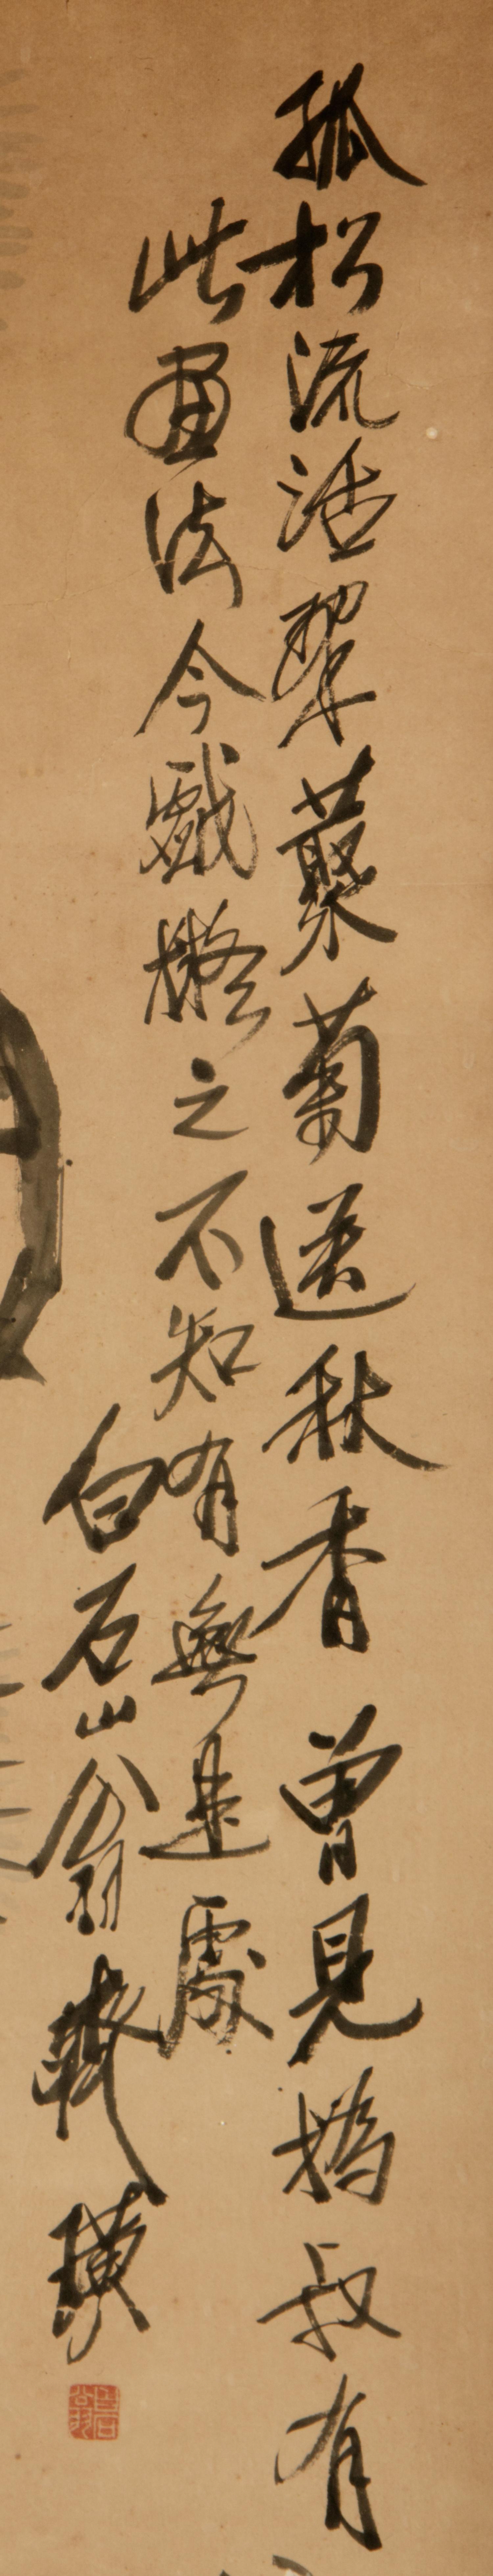 孤松流活翠叢菊送秋香曾見撝叔有
此畫法今戲擬之不知有無是處
白石山翁齊璜
白石翁